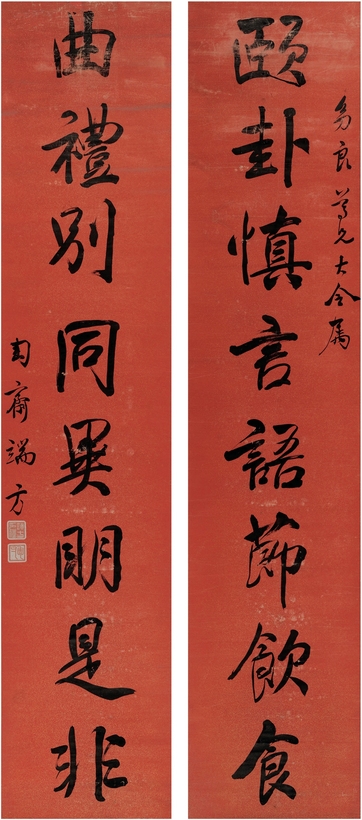 頤卦慎言語節飲食
良尊兄大令属
曲禮別同異明是非
匋齋端方